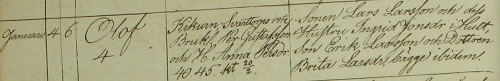 Januarii 4 6 Olof
4
Kikurn: Svartfors
Bruk: Pär Gustafsson
och H. Anna Persdr
40. 45. fl 20/3.
Sonen Lars Larsson och
Hustru Ingrid Jonsdr i Hult,
Son Erik Larsson och Dottren
Brita Larsdr, bägge ibidem.